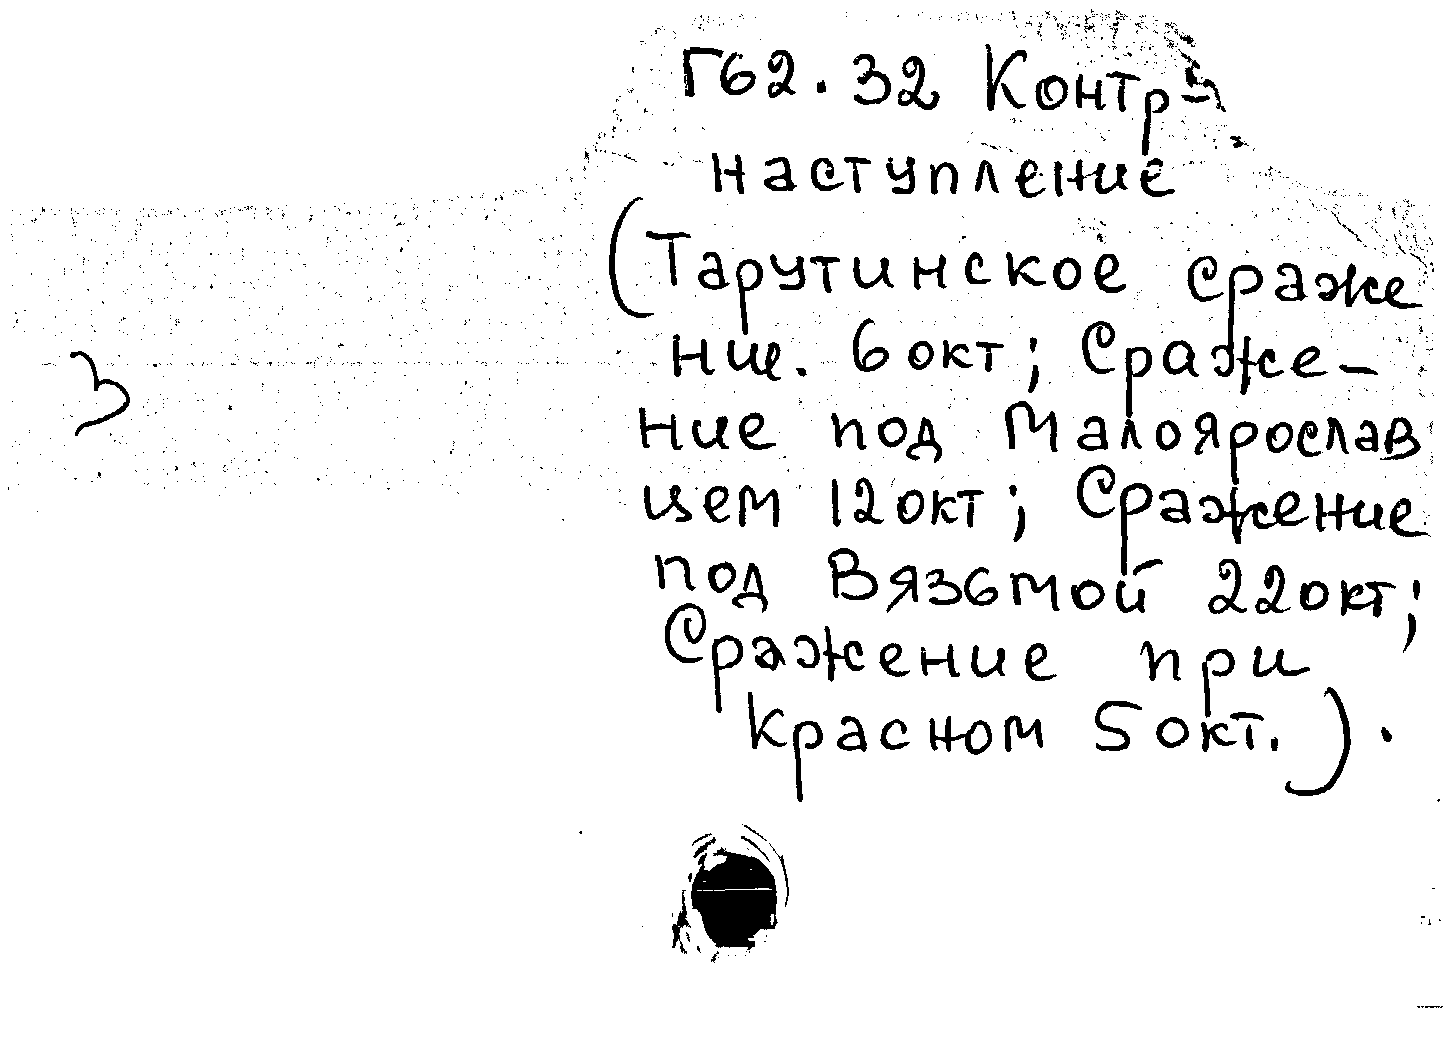 Г62.32 Контр-
наступление
(Тарутинское сраже
ние. 6 окт; Сраже-
ние под Малоярослав
цем 12 окт; Сражение
под Вязьмой 22 окт;
Сражение при
Красном 5 окт.).
З